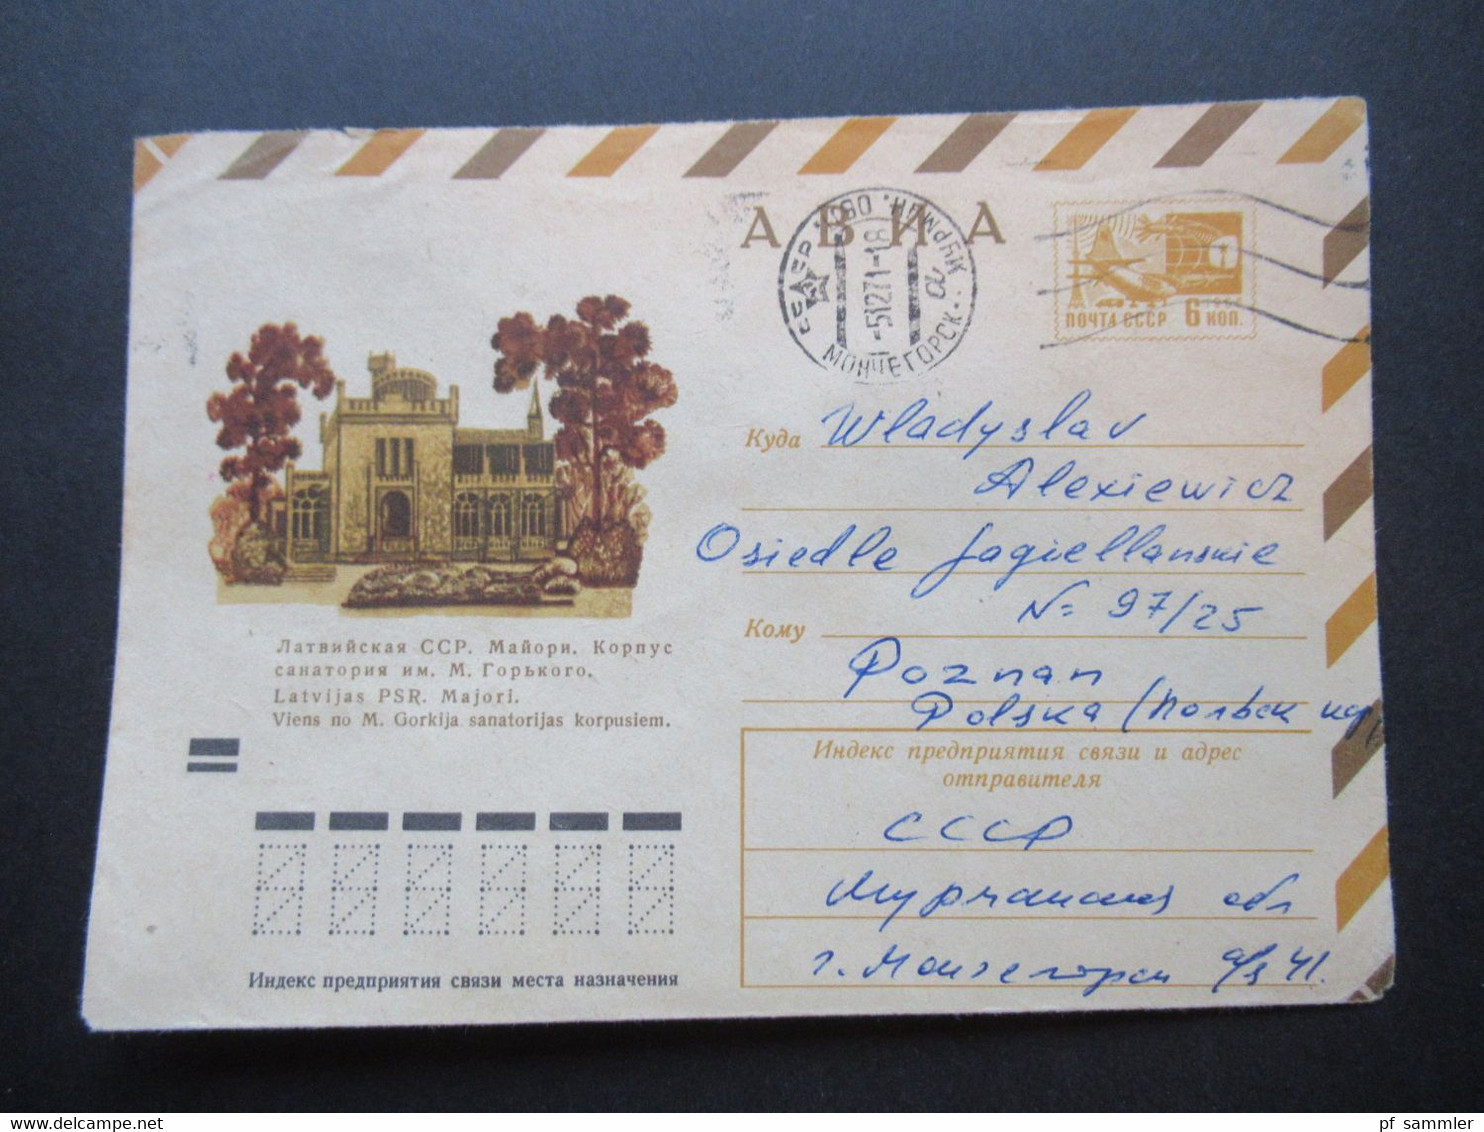 АВИА
ПОЧТА СССР 6 КОП.
МУРМАН. ОБЛ.
-51271-18
а
МОНЧЕГОРСК
Куда Wladyslav
Alexiewicz
Osiedle Jagiellanskie
N= 97/25
Кому
Poznan
Polska (Польск
Латвийская ССР. Майори. Корпус
санатория им. М. Горького.
Latvijas PSR. Majori.
Viens no M. Gorkija sanatorijas korpusiem.
Индекс предприятия связи и адрес
отправителя
СССР
Мурманская обл
г. Мончегорск а/я 41.
Индекс предприятия связи места назначения
pf_sammler